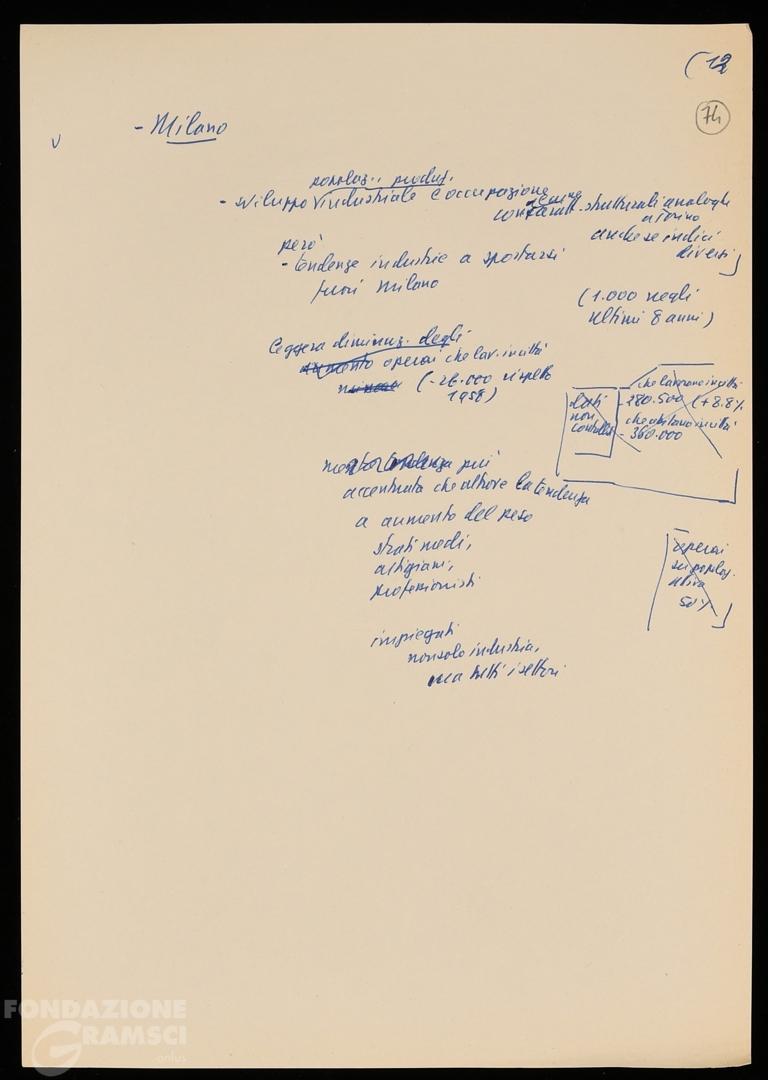 (12
74
v
- Milano
popolaz., produz.
- sviluppo industriale e occupazione
con caratt. strutturali analoghi
a Torino
anche se indici
diversi
però
- tendenze industrie a spostarsi
fuori Milano
(1.000 negli
ultimi 8 anni)
leggera diminuz. degli
aumento operai che lav. in città
(-26.000 rispetto
1958)
dati
non
controllati
che lavorano in città
- 280.500 (+8.8%
che abitano in città
- 360.000
più
accentuata che altrove la tendenza
a aumento del peso
strati medi,
artigiani,
professionisti
operai
su popolaz.
attiva
50%
impiegati
non solo industria,
ma tutti i settori
FONDAZIONE
GRAMSCI
onlus